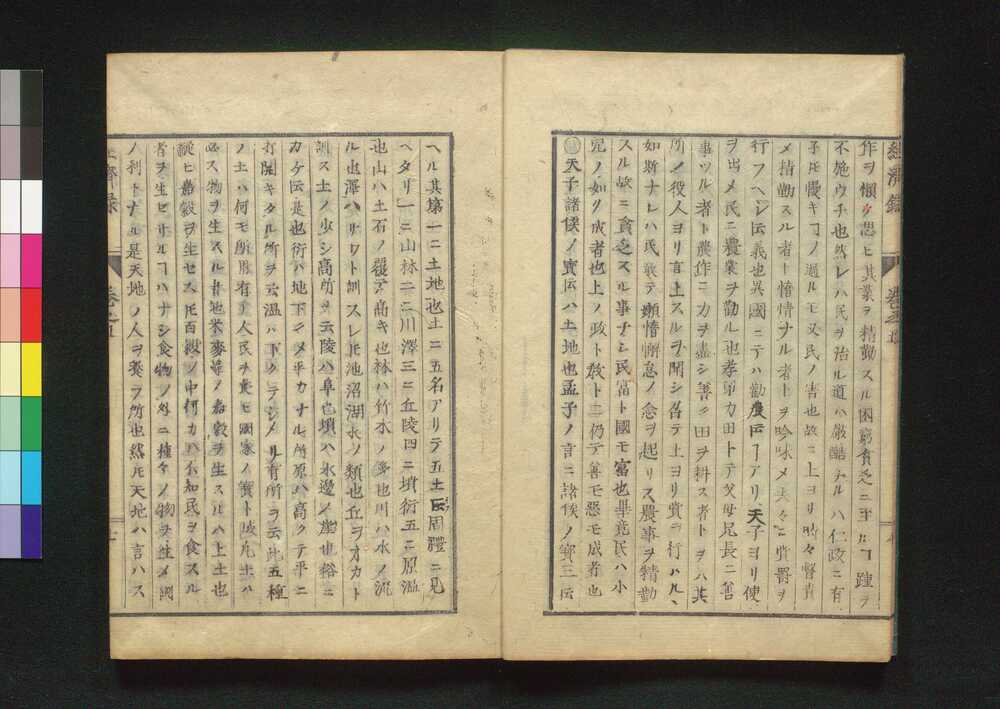 經濟録 卷之五
作ヲ懶ク思ヒ其業ヲ精勤スル困窮貧乏ニ至ルヿ踵ヲ
不施ウチ也然レハ民ヲ治ル道ハ厳酷ナルハ仁政ニ有
子凡慢キヿノ過ルモ又民ノ害也故ニ上ヨリ時々督責
メ精勤スル者ト惰情ナル者トヲ吟味メ夫々ニ賞罰ヲ
行フヘシ云義也異國ニテハ勸農云ヿアリ天子ヨリ使
ヲ出メ民ニ農業ヲ勸ル也孝弟力田トテ父母兄長ニ善
事ツル者ト農作ニ力ヲ盡シ善ク田ヲ耕ス者トヲハ其
所ノ役人ヨリ言上スルヲ聞シ召テ上ヨリ賞ヲ行ハル丶
如斯ナレハ民敢テ懶惰懈怠ノ念ヲ起リス農事ヲ精勤
スル故ニ貧乏スル事ナシ民富ト國モ富也畢竟民ハ小
児ノ如リ成者也上ノ政ト敎トニ仍テ善モ悪モ成者也
天子諸侯ノ寳云ハ土地也孟子ノ言ニ諸侯ノ寳三云
ヘル其第一ニ土地也土ニ五名アリテ五土云周禮ニ見
ヘタリ一ニ山林二ニ川澤三ニ丘陵四ニ墳衍五ニ原濕
也山ハ土石ノ聚テ高キ也林ハ竹木ノ多也川ハ水ノ流
ル也澤ハサワト訓スレ𪜈池沼湖水ノ類也丘ヲオカト
訓ス土ノ少シ高所ヲ云陵ハ阜也墳ハ水邊ノ崖也俗ニ
カケ云是也衍ハ地下ニメ平カナル所原ハ高クテ平ニ
打開キタル所ヲ云濕ハ下クテシメリ有所ヲ云此五種
ノ土ハ何モ所用有テ人民ヲ養ヒ國家ノ寳ト成凡土ハ
必ス物ヲ生スル者地米麥等ノ嘉穀ヲ生スルハ上土也
縱ヒ嘉穀ヲ生セス𪜈百穀ノ中何カハ不知民ヲ食スル
者ヲ生セサルヿハナシ食物ノ外ニ種々ノ物ヲ生メ國
ノ利トナル是天地ノ人ヲ養フ所也然𪜈天地ハ言ハス
經濟録 卷之五